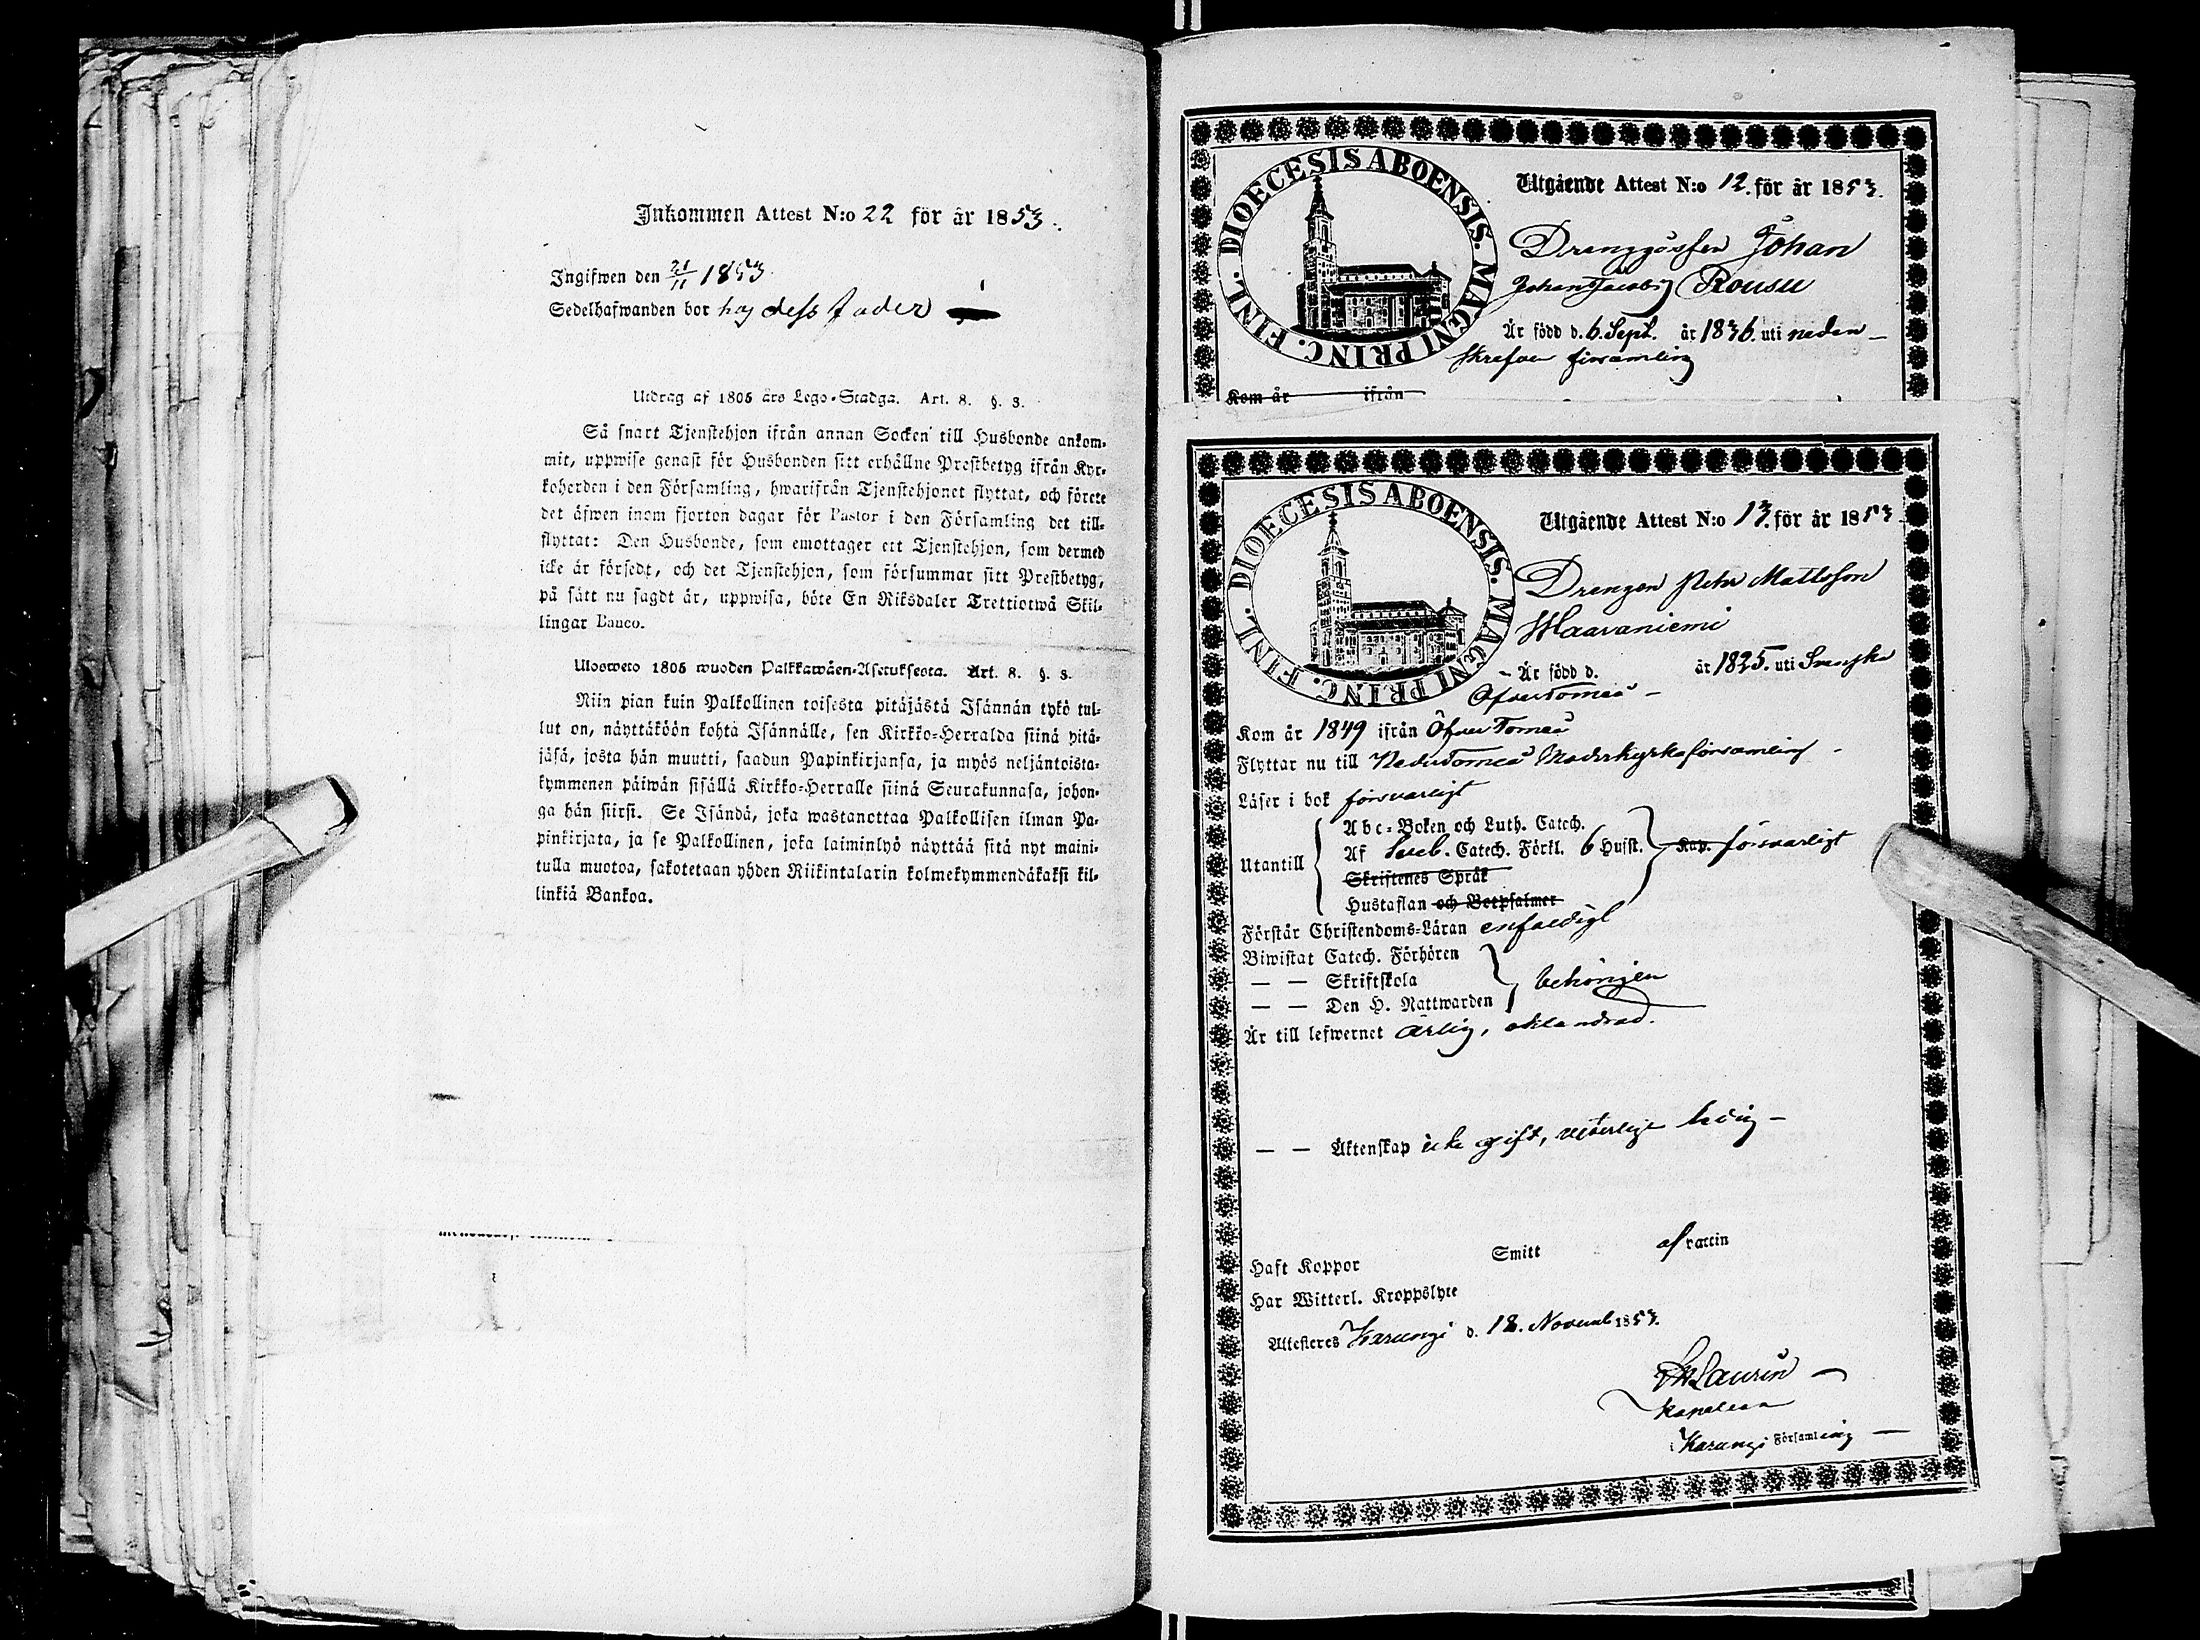 Inkommen Attest N:o 22 för år 1853.
Ingifwen den 21/11 1853.
Sedelhafwanden bor hos dess fader
Utdrag af 1805 års Lego-Stadga. Art. 8. §. 3.
Så snart Tjenstehjon ifrån annan Socken till Husbonde ankom-
mit, uppwise genast för Husbonden sitt erhållne Prestbetyg ifrån Kyr-
koherden i den Församling, hwarifrån Tjenstehjonet flyttat, och förete
det äfwen inom fjorton dagar för Pastor i den Församling det till-
flyttat: Den Husbonde, som emottager ett Tjenstehjon, som dermed
icke är försedt, och det Tjenstehjon, som försummar sitt Prestbetyg,
på sätt nu sagdt är, uppwisa, böte En Riksdaler Trettiotwå Skil-
lingar Banco.
Ulosweto 1805 wuoden Palkkawäen-Asetuksesta. Art. 8. §. 3.
Niin pian kuin Palkollinen toisesta pitäjästä Isännän tykö tul-
lut on, näyttäköön kohta Isännälle, sen Kirkko-Herralda siinä pitä-
jäsä, josta hän muutti, saadun Papinkirjansa, ja myös neljäntoista-
kymmenen päiwän sisällä Kirkko-Herralle siinä Seurakunnasa, johon-
ga hän siirsi. Se Isändä, joka wastanottaa Palkollisen ilman Pa-
pinkirjata, ja se Palkollinen, joka laiminlyö näyttää sitä nyt maini-
tulla muotoa, sakotetaan yhden Riikintalarin kolmekymmendäkaksi kil-
linkiä Bankoa.
DIOECESIS ABOENSIS. MAGNI PRINC. FINL.
Utgående Attest N:o 12. för år 1853.
Drenggossen Johan
Johans Jacobs Rousu
Är född d. 6. Sept. år 1836. uti neden-
skrefven församling
Kom år ifrån
DIOECESIS ABOENSIS. MAGNI PRINC. FINL.
Utgående Attest N:o 13. för år 1853
Drengen Petr Mattsson
Maavaniemi
- Är född d. år 1825. uti Svenska
ÖfverTorneå -
Kom år 1849 ifrån ÖfverTorneå
Flyttar nu till NederTorneå Moderkyrkoförsamling -
Läser i bok försvarligt
Utantill
Abc-Boken och Luth. Catech.
Af Sveb. Catech. Förkl. 6 Hufst. Kap. försvarligt
Skriftenes Språk
Hustaflan och Botpsalmer
Förstår Christendoms-Läran enfaldigt
Biwistat Catech. Förhören
— — Skriftskola behörigen
— — Den H. Nattwarden
Är till lefwernet ärlig, oklandrad.
— — Äktenskap icke gift, veterligt ledig -
Haft Koppor Smitt af vaccin
Har Witterl. Kroppslyte
Attesteras Karungi d. 18. Novemb 1853.
Laurin -
Kapellan
i Karungi Församling -